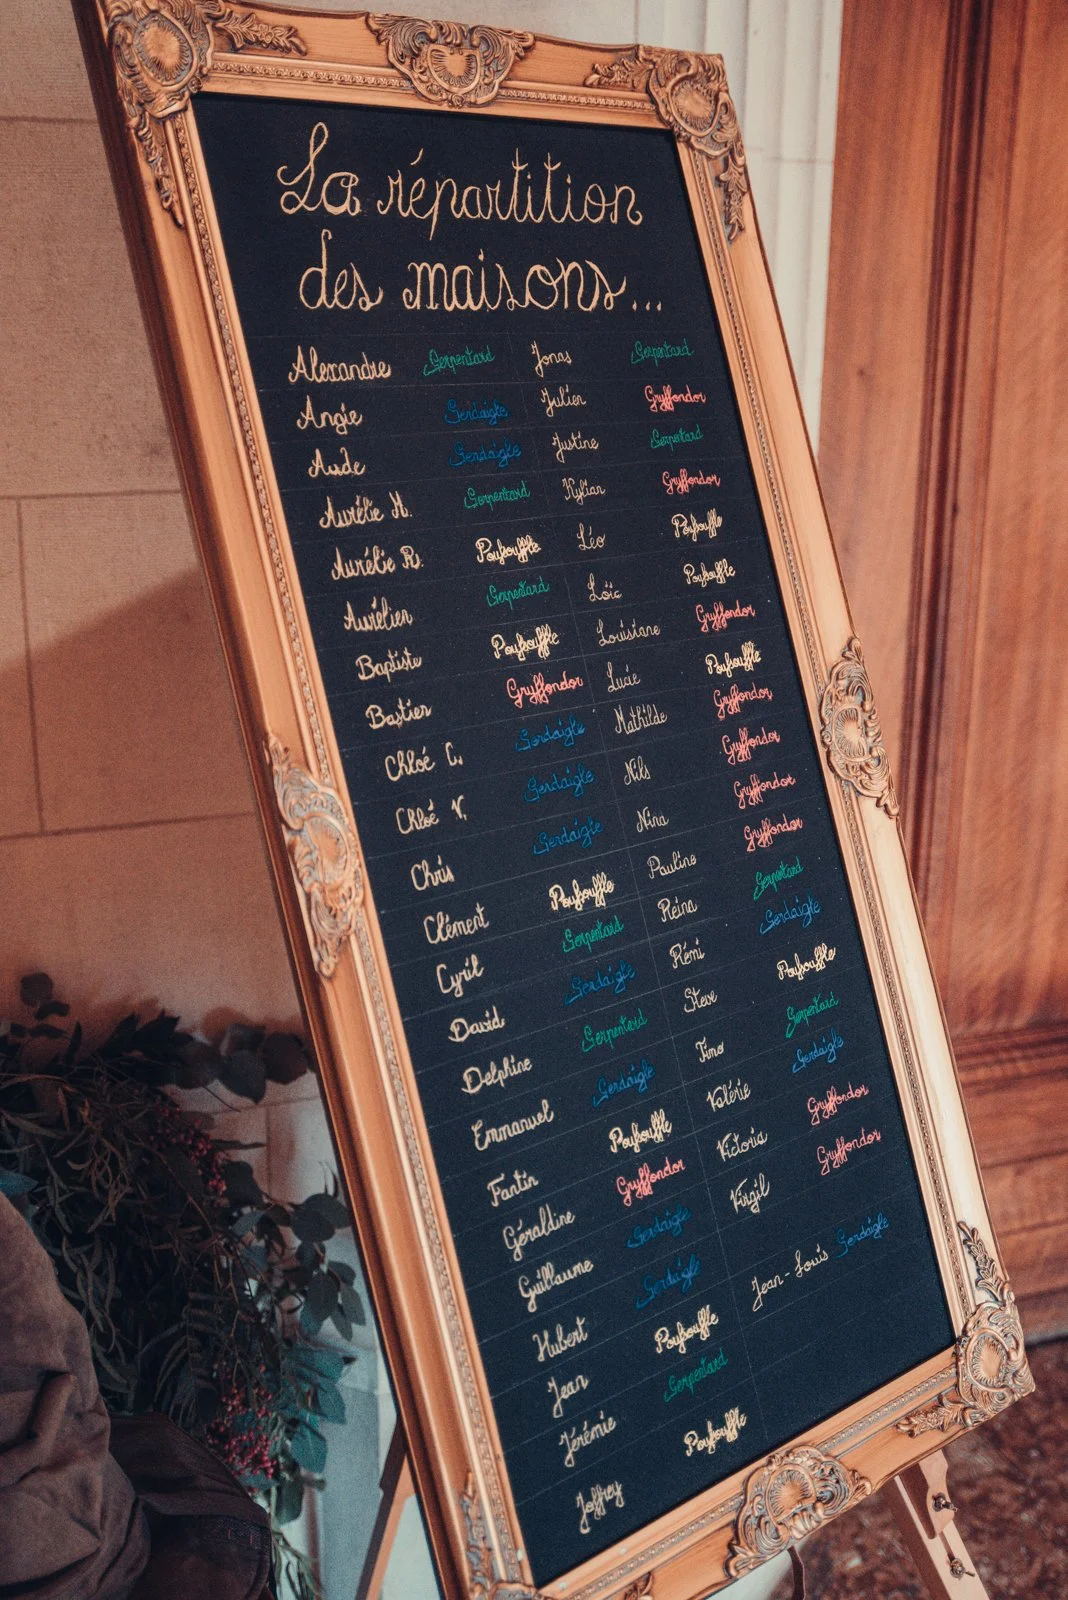 La répartition
des maisons...
Alexandre Serpentard
Angie Serdaigle
Aude Serdaigle
Aurélie M. Serpentard
Aurélie R. Poufsouffle
Aurélien Serpentard
Baptiste Poufsouffle
Bastien Gryffondor
Chloé C. Serdaigle
Chloé V. Serdaigle
Chris Serdaigle
Clément Poufsouffle
Cyril Serpentard
David Serdaigle
Delphine Serpentard
Emmanuel Serdaigle
Fantin Poufsouffle
Géraldine Gryffondor
Guillaume Serdaigle
Hubert Serdaigle
Jean Poufsouffle
Jérémie Serpentard
Joffrey Poufsouffle
Jonas Serpentard
Julien Gryffondor
Justine Serpentard
Kylian Gryffondor
Léo Poufsouffle
Loïc Poufsouffle
Louisiane Gryffondor
Lucie Poufsouffle
Mathilde Gryffondor
Nils Gryffondor
Nina Gryffondor
Pauline Gryffondor
Reina Serpentard
Rémi Serdaigle
Steve Poufsouffle
Timo Serpentard
Valérie Serdaigle
Victoria Gryffondor
Virgil Gryffondor
Jean-Louis Serdaigle